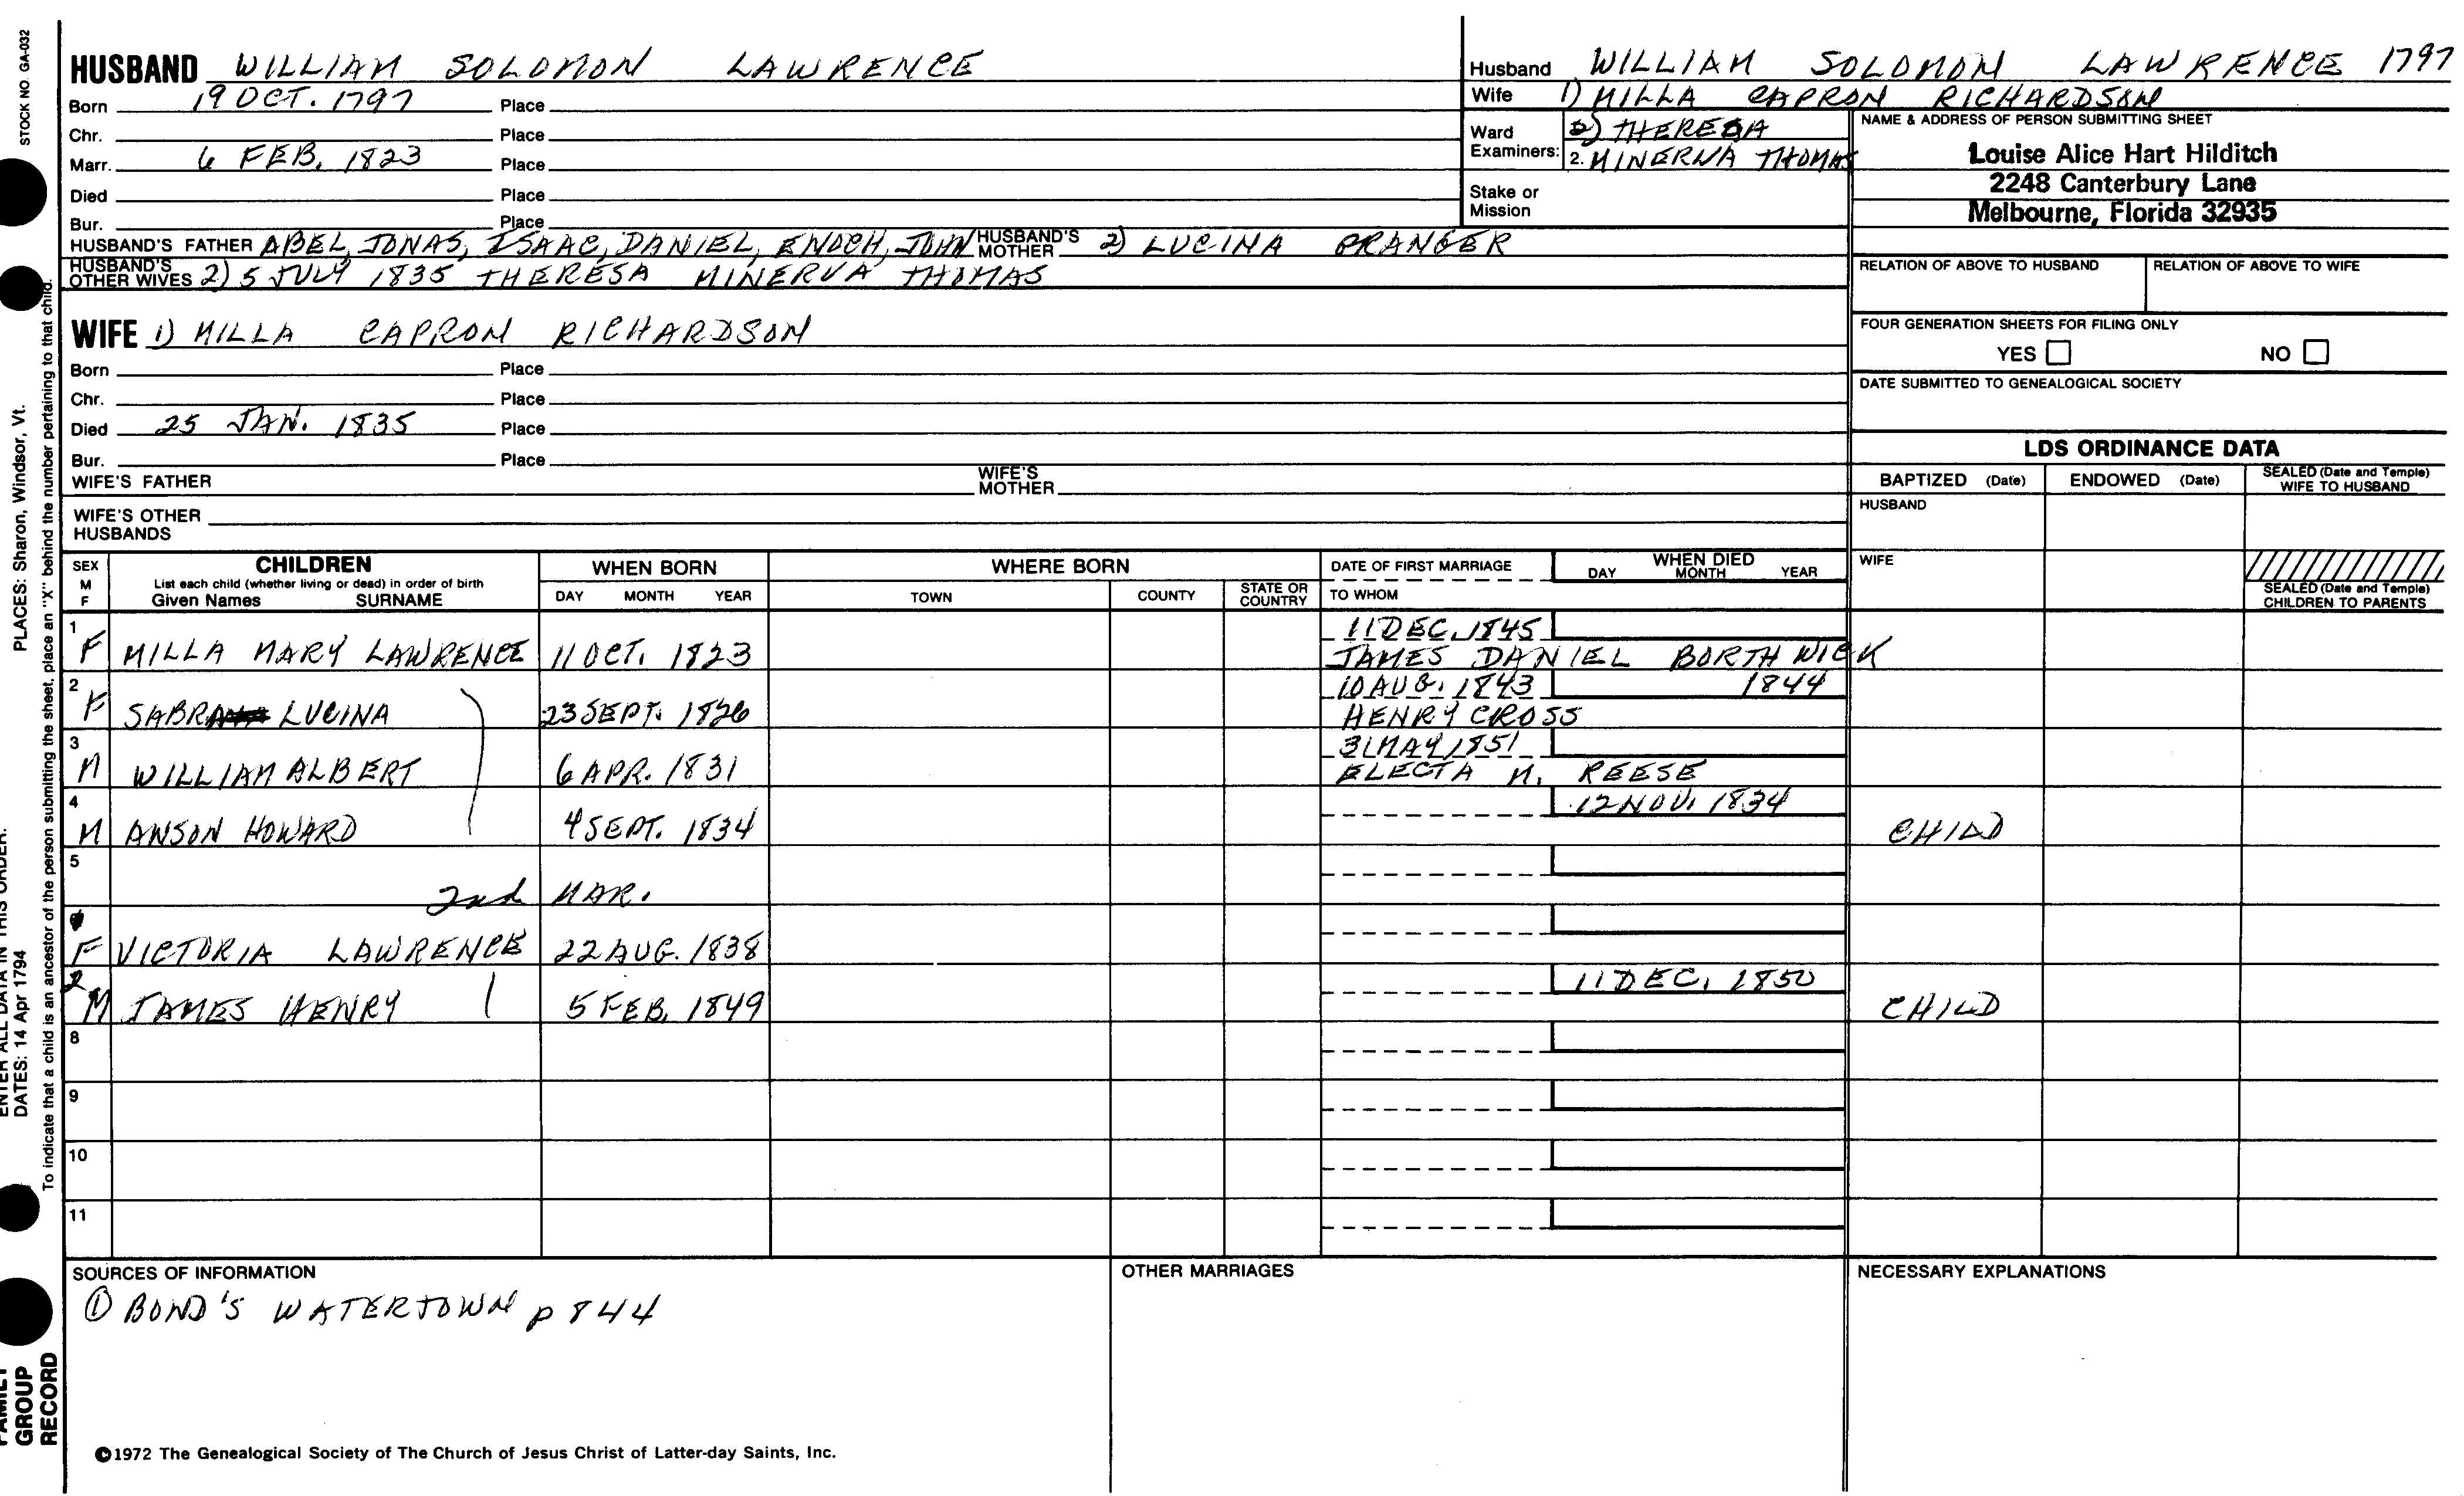 STOCK NO. GA-032
HUSBAND WILLIAM SOLOMON LAWRENCE
Born 19 OCT. 1797 Place
Chr. Place
Marr. 6 FEB. 1823 Place
Died Place
Bur. Place
HUSBAND'S FATHER ABEL, JONAS, ISAAC, DANIEL, ENOCH, JOHN HUSBAND'S MOTHER 2) LUCINA PRANGER
HUSBAND'S OTHER WIVES 2) 5 JULY 1835 THERESA MINERVA THOMAS
Husband WILLIAM SOLOMON LAWRENCE 1797
Wife 1) MILLA CAPRON RICHARDSON
Ward Examiners: 2) THERESA
2. MINERVA THOMAS
Stake or Mission
NAME & ADDRESS OF PERSON SUBMITTING SHEET
Louise Alice Hart Hilditch
2248 Canterbury Lane
Melbourne, Florida 32935
RELATION OF ABOVE TO HUSBAND RELATION OF ABOVE TO WIFE
FOUR GENERATION SHEETS FOR FILING ONLY
YES NO
DATE SUBMITTED TO GENEALOGICAL SOCIETY
WIFE 1) MILLA CAPRON RICHARDSON
Born Place
Chr. Place
Died 25 JAN. 1835 Place
Bur. Place
WIFE'S FATHER WIFE'S MOTHER
WIFE'S OTHER HUSBANDS
LDS ORDINANCE DATA
BAPTIZED (Date) ENDOWED (Date) SEALED (Date and Temple) WIFE TO HUSBAND
HUSBAND
WIFE
SEALED (Date and Temple) CHILDREN TO PARENTS
SEX M F CHILDREN List each child (whether living or dead) in order of birth Given Names SURNAME
WHEN BORN DAY MONTH YEAR
WHERE BORN TOWN COUNTY STATE OR COUNTRY
DATE OF FIRST MARRIAGE TO WHOM
WHEN DIED DAY MONTH YEAR
1 F MILLA MARY LAWRENCE 11 OCT. 1823 11 DEC. 1845
JAMES DANIEL BORTHWICK
2 F SABRA LUCINA 23 SEPT. 1826 10 AUG. 1843 1844
HENRY CROSS
3 M WILLIAM ALBERT 6 APR. 1831 31 MAY 1851
ELECTA M. REESE
4 M ANSON HOWARD 4 SEPT. 1834 12 NOV. 1834 CHILD
5
2nd MAR.
F VICTORIA LAWRENCE 22 AUG. 1838
2 M JAMES HENRY 5 FEB. 1849 11 DEC. 1850 CHILD
8
9
10
11
SOURCES OF INFORMATION
① BOND'S WATERTOWN p 844
OTHER MARRIAGES
NECESSARY EXPLANATIONS
©1972 The Genealogical Society of The Church of Jesus Christ of Latter-day Saints, Inc.
PLACES: Sharon, Windsor, Vt.
ENTER ALL DATA IN THIS ORDER:
DATES: 14 Apr 1794
To indicate that a child is an ancestor of the person submitting the sheet, place an "X" behind the number pertaining to that child.
FAMILY
GROUP
RECORD